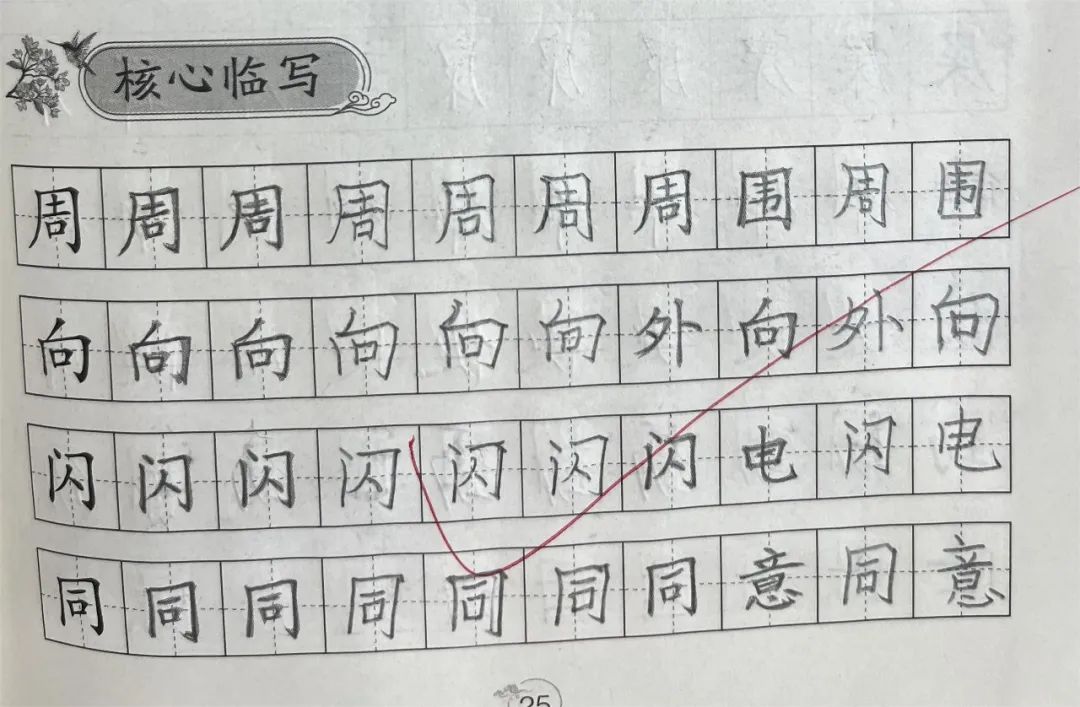 核心临写
周周周周周周周围周围
向向向向向向外向外向
闪闪闪闪闪闪闪电闪电
同同同同同同同意同意
25